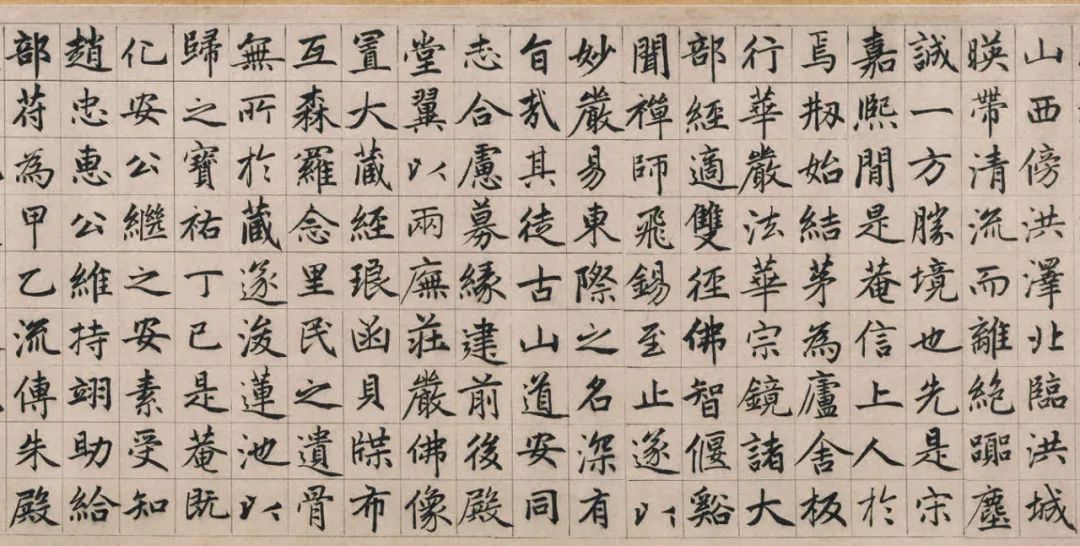 山西傍洪澤北臨洪城
暎帶清流而離絶囂塵
誠一方勝境也先是宋
嘉熈間是菴信上人於
焉剏始結茅為廬舍板
行華嚴法華宗鏡諸大
部經適雙徑佛智偃谿
聞禪師飛錫至止遂以
妙嚴易東際之名深有
旨哉其徒古山道安同
志合慮募緣建前後殿
堂翼以兩廡莊嚴佛像
置大藏經琅函貝牒布
互森羅念里民之遺骨
無所於藏遂浚蓮池以
歸之寶祐丁巳是菴既
化安公繼之安素受知
趙忠惠公維持翊助給
部苻為甲乙流傳朱殿